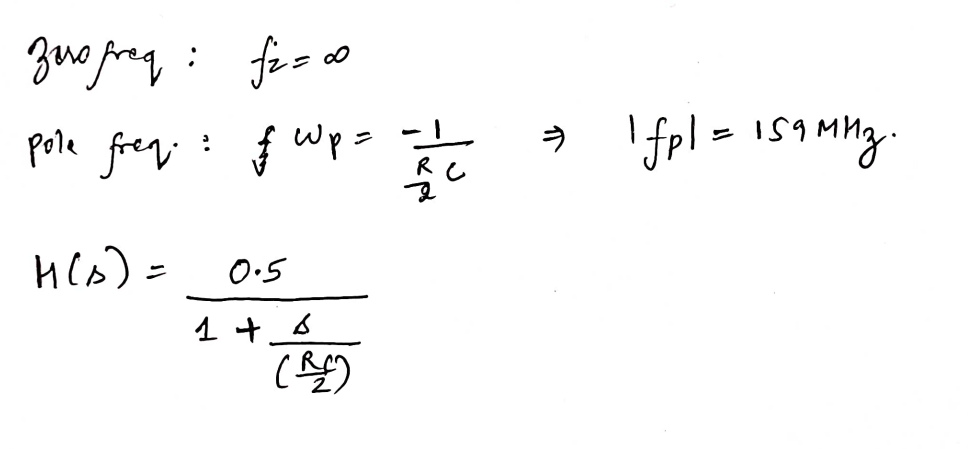 zero freq : fz = ∞
pole freq. : ωp = -1 / (R/2 C) ⇒ |fp| = 159 MHz.
H(s) = 0.5 / (1 + s / (RC/2))